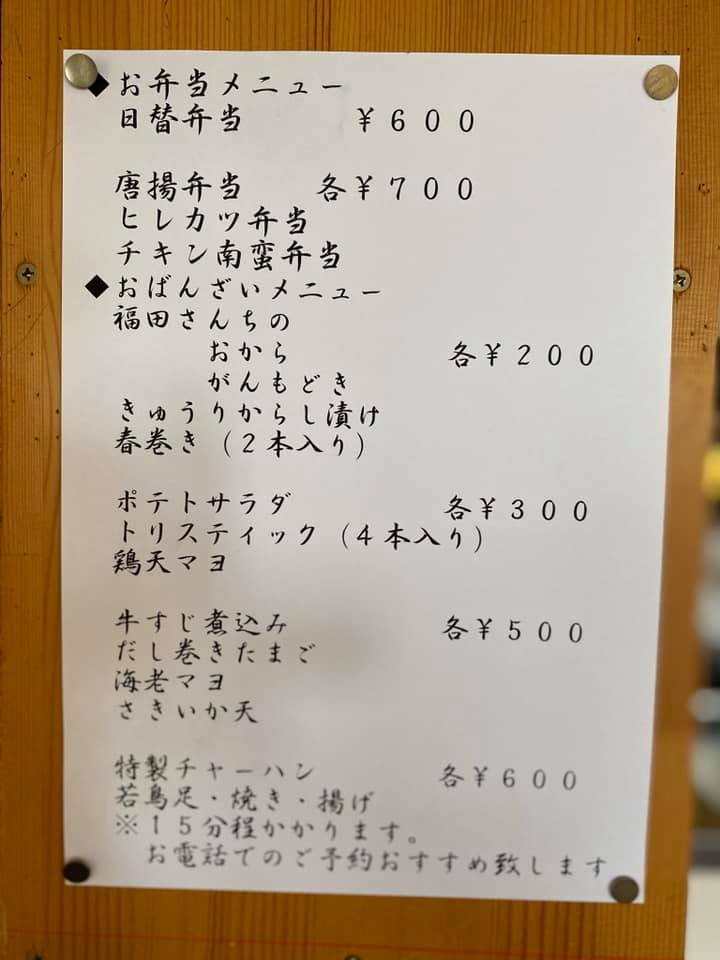 ◆お弁当メニュー
日替弁当　￥６００
唐揚弁当　各￥７００
ヒレカツ弁当
チキン南蛮弁当
◆おばんざいメニュー
福田さんちの
おから　各￥２００
がんもどき
きゅうりからし漬け
春巻き（２本入り）
ポテトサラダ　各￥３００
トリスティック（４本入り）
鶏天マヨ
牛すじ煮込み　各￥５００
だし巻きたまご
海老マヨ
さきいか天
特製チャーハン　各￥６００
若鳥足・焼き・揚げ
※１５分程かかります。
お電話でのご予約おすすめ致します